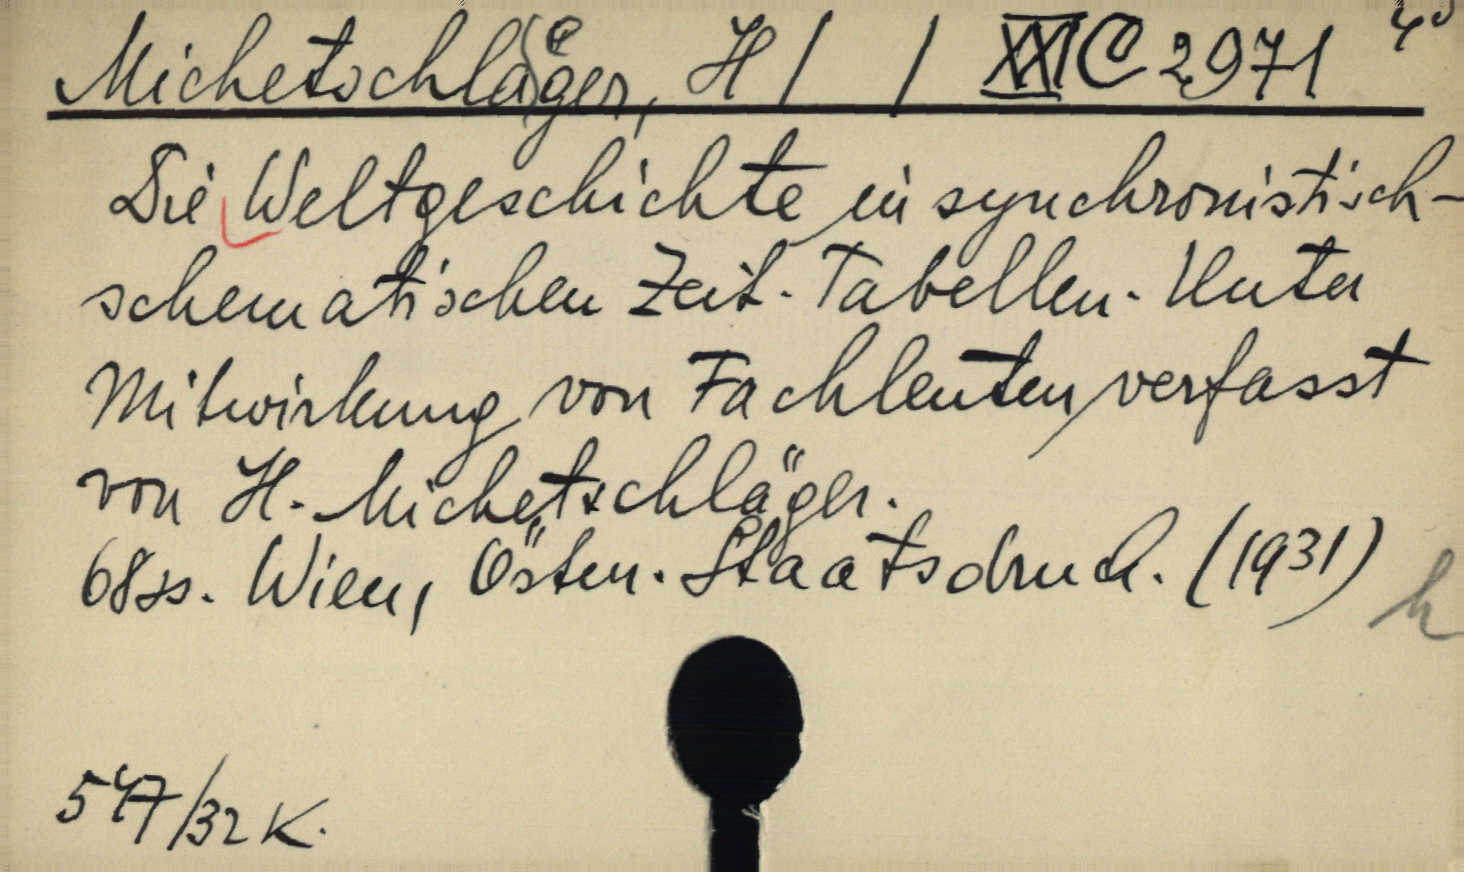 Michetschläger, H / / XXI C 2971 4°
Die Weltgeschichte in synchronistisch-
schematischen Zeit-Tabellen. Unter
Mitwirkung von Fachleuten verfasst
von H. Michetschläger.
68 ss. Wien, Österr. Staatsdruck. (1931)
h
547/32 K.